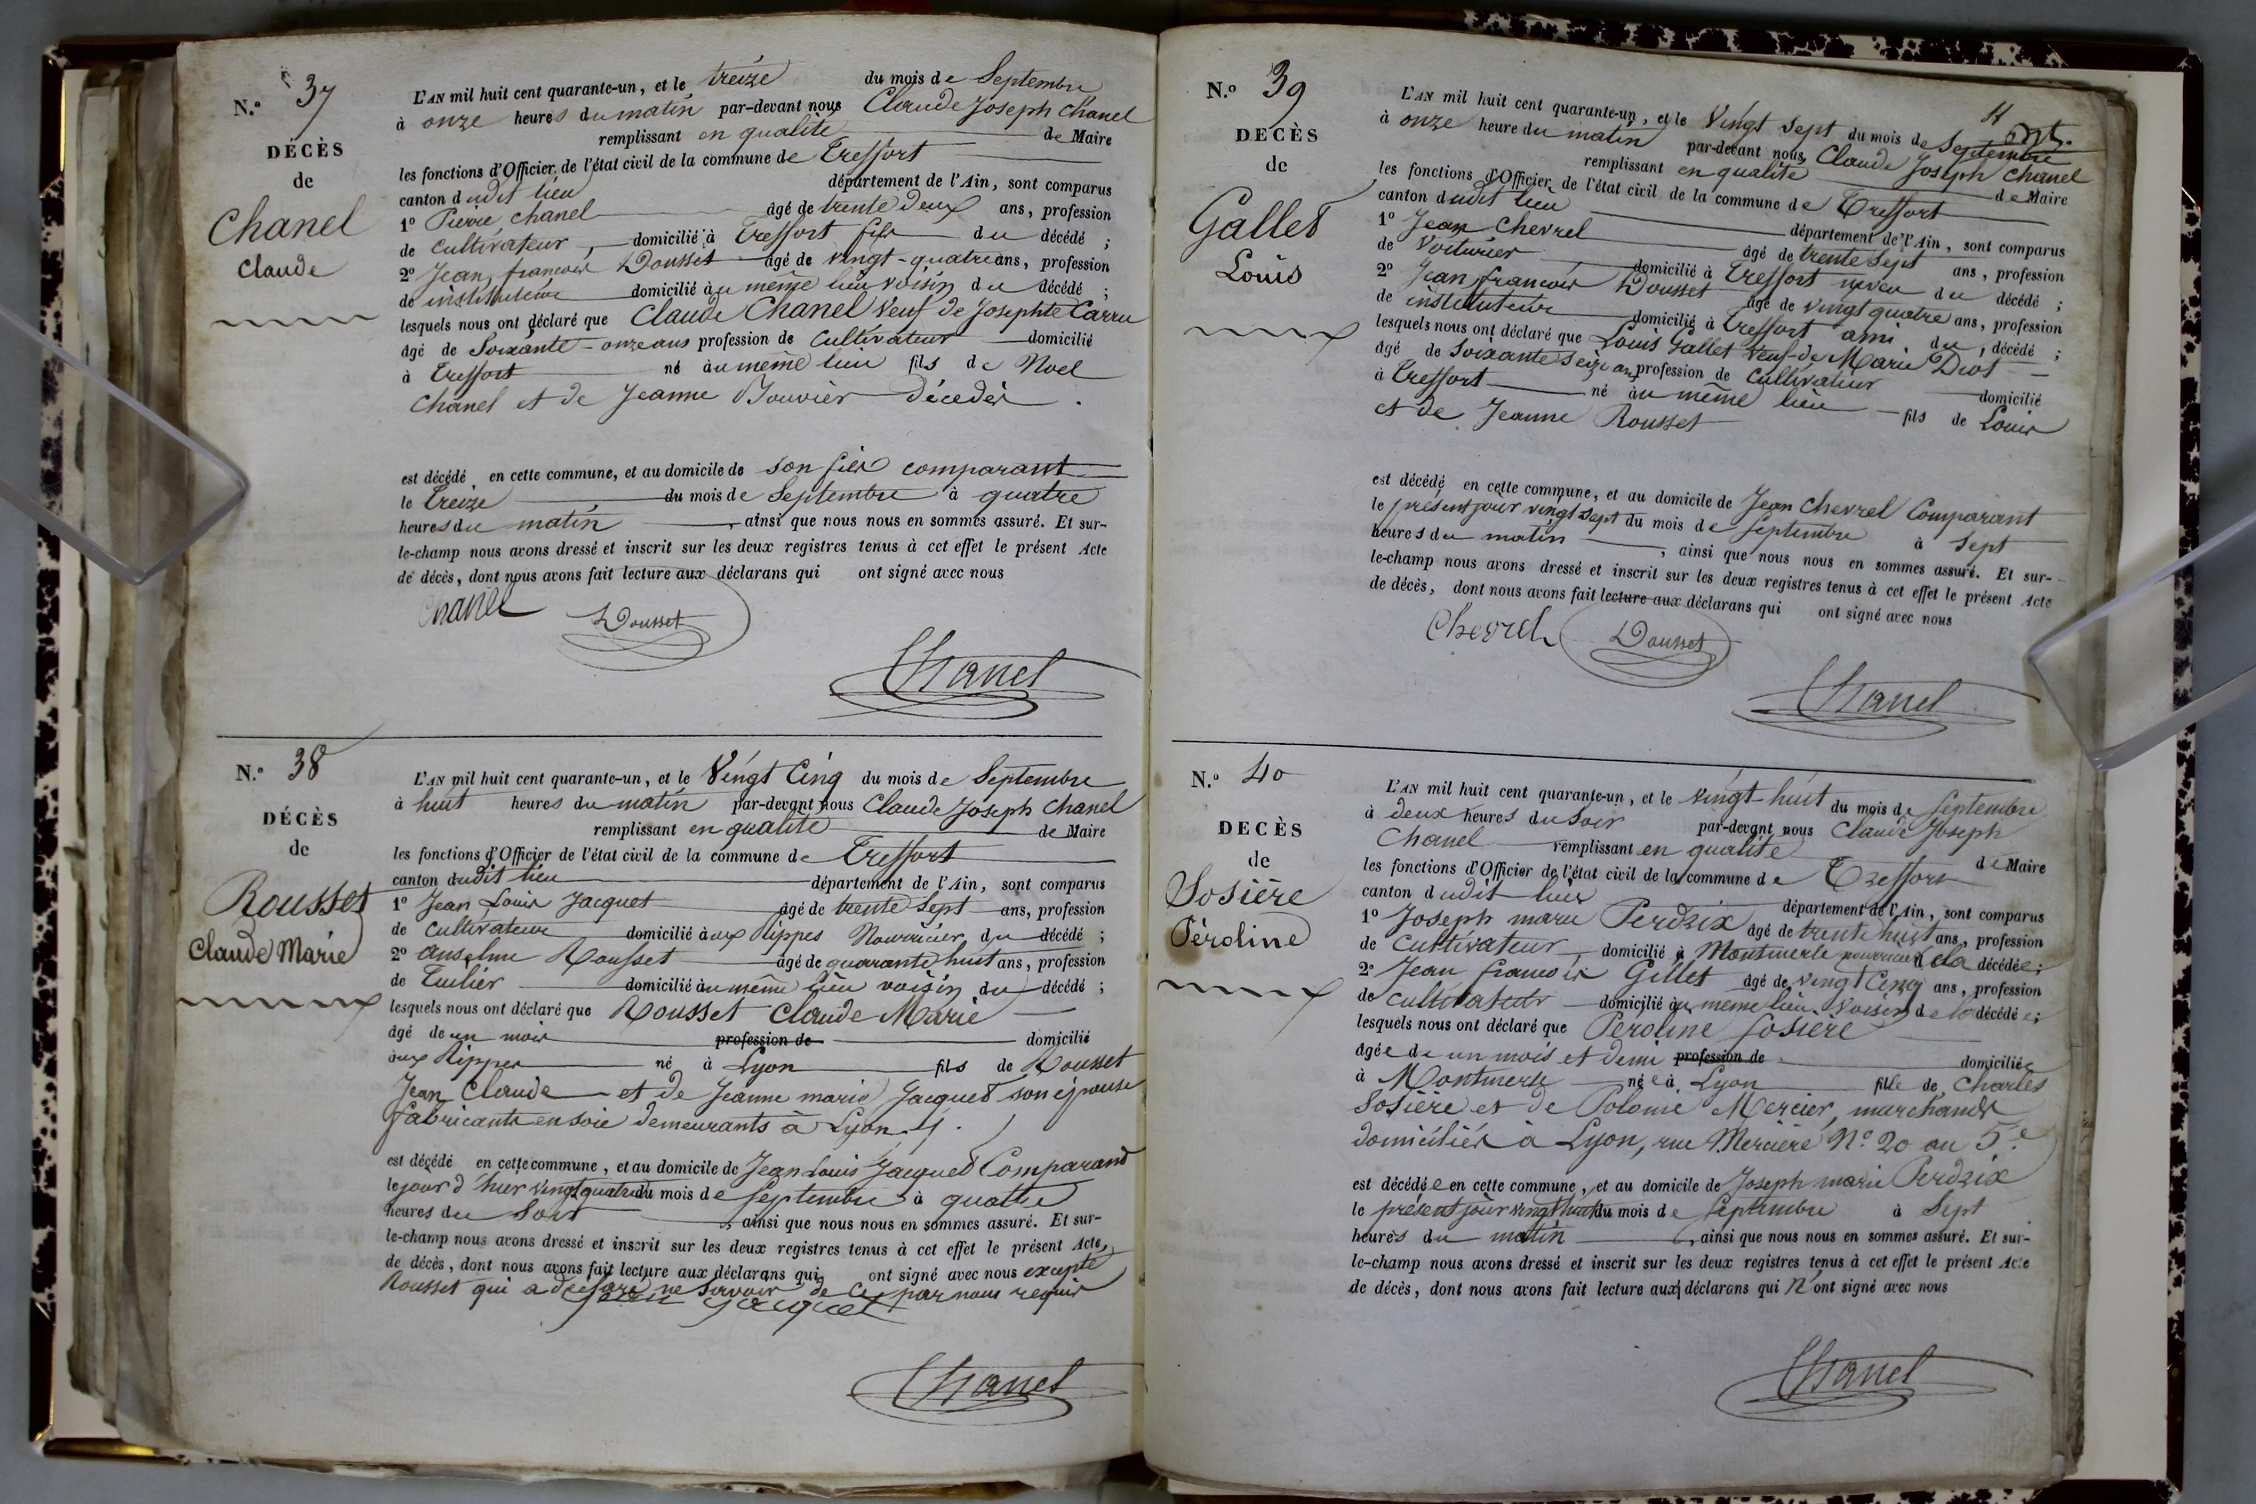 N.° 37
DÉCÈS
de
Chanel
Claude
L'AN mil huit cent quarante-un, et le treize du mois de Septembre
à onze heures du matin par-devant nous Claude Joseph Chanel
remplissant en qualité de Maire
les fonctions d'Officier de l'état civil de la commune de Treffort
canton dudit lieu département de l'Ain, sont comparus
1° Pierre Chanel âgé de trente deux ans, profession
de cultivateur, domicilié à Treffort fils du décédé ;
2° Jean françois Dousset âgé de vingt-quatre ans, profession
de instituteur domicilié au même lieu voisin du décédé ;
lesquels nous ont déclaré que Claude Chanel Veuf de Josephte Carru
âgé de Soixante-onze ans profession de Cultivateur domicilié
à Treffort né au même lieu fils de Noel
Chanel et de Jeanne Bouvier décédés.
est décédé en cette commune, et au domicile de son fils comparant
le treize du mois de Septembre à quatre
heures du matin, ainsi que nous nous en sommes assuré. Et sur-
le-champ nous avons dressé et inscrit sur les deux registres tenus à cet effet le présent Acte
de décès, dont nous avons fait lecture aux déclarans qui ont signé avec nous
Chanel Dousset
Chanel
N.° 38
DÉCÈS
de
Rousset
Claude Marie
L'AN mil huit cent quarante-un, et le Vingt Cinq du mois de Septembre
à huit heures du matin par-devant nous Claude Joseph Chanel
remplissant en qualité de Maire
les fonctions d'Officier de l'état civil de la commune de Treffort
canton dudit lieu département de l'Ain, sont comparus
1° Jean Louis Jacquet âgé de trente Sept ans, profession
de Cultivateur domicilié aux Rippes Nourricier du décédé ;
2° anselme Rousset âgé de quarante huit ans, profession
de Tuilier domicilié au même lieu voisin du décédé ;
lesquels nous ont déclaré que Rousset Claude Marie
âgé de un mois profession de domicilié
aux Rippes né à Lyon fils de Rousset
Jean Claude et de Jeanne marie Jacquet son épouse
fabricants en soie demeurants à Lyon.
est décédé en cette commune, et au domicile de Jean Louis Jacquet Comparant
le jour d'hier vingt quatre du mois de Septembre à quatre
heures du Soir, ainsi que nous nous en sommes assuré. Et sur-
le-champ nous avons dressé et inscrit sur les deux registres tenus à cet effet le présent Acte
de décès, dont nous avons fait lecture aux déclarans qui ont signé avec nous excepté
Rousset qui a déclaré ne savoir de ce par nous requis
jacquet
Chanel
N.° 39
DECÈS
de
Gallet
Louis
L'AN mil huit cent quarante-un, et le Vingt Sept du mois de Septembre
à onze heure du matin par-devant nous Claude Joseph Chanel
remplissant en qualité de Maire
les fonctions d'Officier de l'état civil de la commune de Treffort
canton dudit lieu département de l'Ain, sont comparus
1° Jean Chevrel âgé de trente Sept ans, profession
de Voiturier domicilié à Treffort neveu du décédé ;
2° Jean françois Dousset âgé de vingt quatre ans, profession
de instituteur domicilié à Treffort ami du décédé ;
lesquels nous ont déclaré que Louis Gallet Veuf de Marie Diot
âgé de Soixante Seize ans profession de Cultivateur domicilié
à Treffort né au même lieu fils de Louis
et de Jeanne Rousset
est décédé en cette commune, et au domicile de Jean Chevrel Comparant
le présent jour vingt Sept du mois de Septembre à Sept
heures du matin, ainsi que nous nous en sommes assuré. Et sur-
le-champ nous avons dressé et inscrit sur les deux registres tenus à cet effet le présent Acte
de décès, dont nous avons fait lecture aux déclarans qui ont signé avec nous
Chevrel Dousset
Chanel
N.° 40
DECÈS
de
Sosière
Péroline
L'AN mil huit cent quarante-un, et le vingt-huit du mois de Septembre
à deux heures du soir par-devant nous Claude Joseph
Chanel remplissant en qualité de Maire
les fonctions d'Officier de l'état civil de la commune de Treffort
canton dudit lieu département de l'Ain, sont comparus
1° Joseph marie Perdrix âgé de trente huit ans, profession
de Cultivateur domicilié à Montmerle nourricier de la décédée ;
2° Jean francois Gillet âgé de vingt Cinq ans, profession
de Cultivateur domicilié au même lieu Voisin de la décédée ;
lesquels nous ont déclaré que Peroline Sosière
âgée de un mois et demi profession de domiciliée
à Montmerle née à Lyon fille de Charles
Sosière et de Polonie Mercier, marchands
domiciliés à Lyon, rue Mercière N° 20 au 5e
est décédée en cette commune, et au domicile de Joseph marie Perdrix
le présent jour vingt huit du mois de Septembre à Sept
heures du matin, ainsi que nous nous en sommes assuré. Et sur-
le-champ nous avons dressé et inscrit sur les deux registres tenus à cet effet le présent Acte
de décès, dont nous avons fait lecture aux déclarans qui n'ont signé avec nous
Chanel